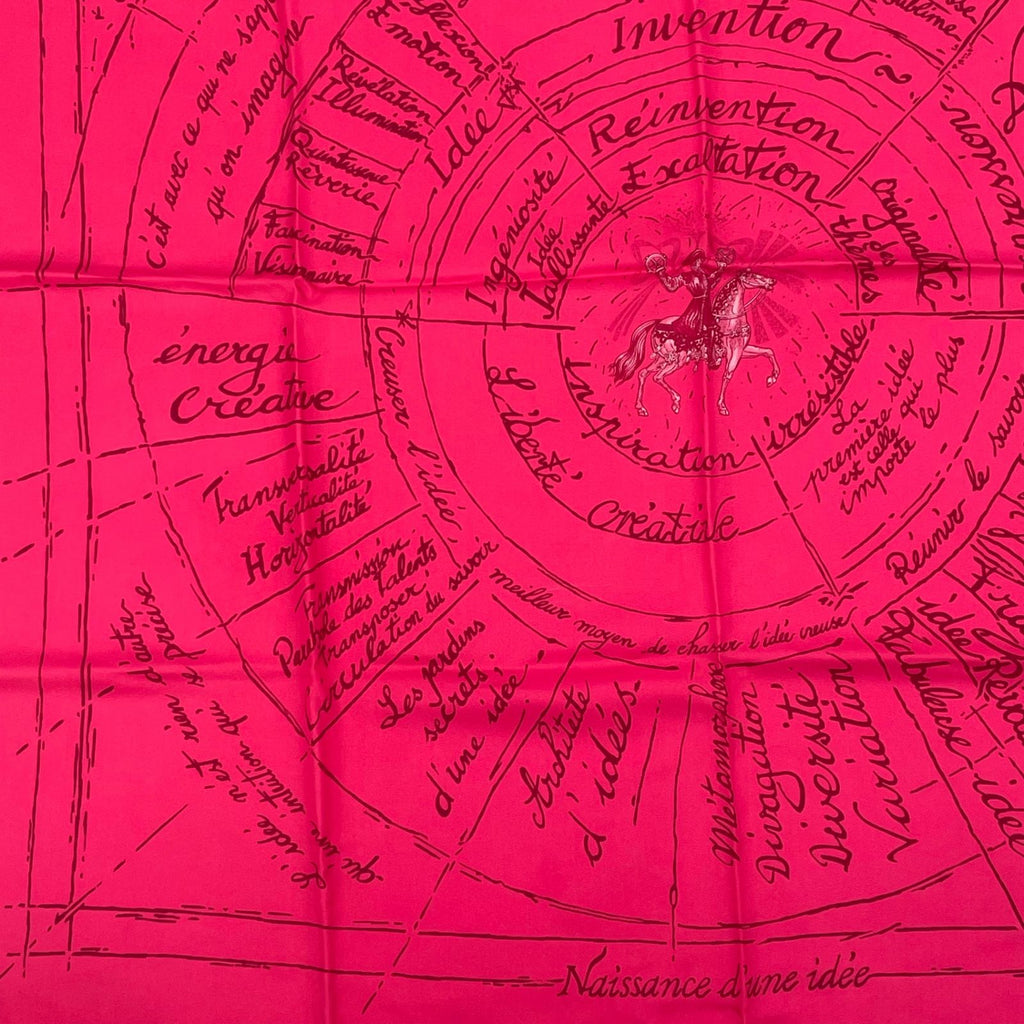 Invention
Réinvention
Exaltation
Idée
Ingéniosité
Idée
Jaillissante
Originalité
des
thèmes
Émotion
Révélation
Illumination
Quintessence
Rêverie
Fascination
Visionnaire
C'est avec ce qui ne
qu'on imagine
énergie
Créative
Transversalité
Verticalité
Horizontalité
Transmission
Parabole des Talents
Transposer
Circulation du savoir
Creuser l'idée
meilleur moyen de chasser l'idée creuse
Liberté
Créative
Inspiration irrésistible
La
première idée
est celle qui
importe le plus
Réunir le savoir
Les jardins
secrets
d'une idée
Architecte
d'idées
Métamorphose
Divagation
Diversité
Variation
Fabuleuse idée
idée
L'idée n'est rien d'autre
qu'une intuition qui se précise
Naissance d'une idée